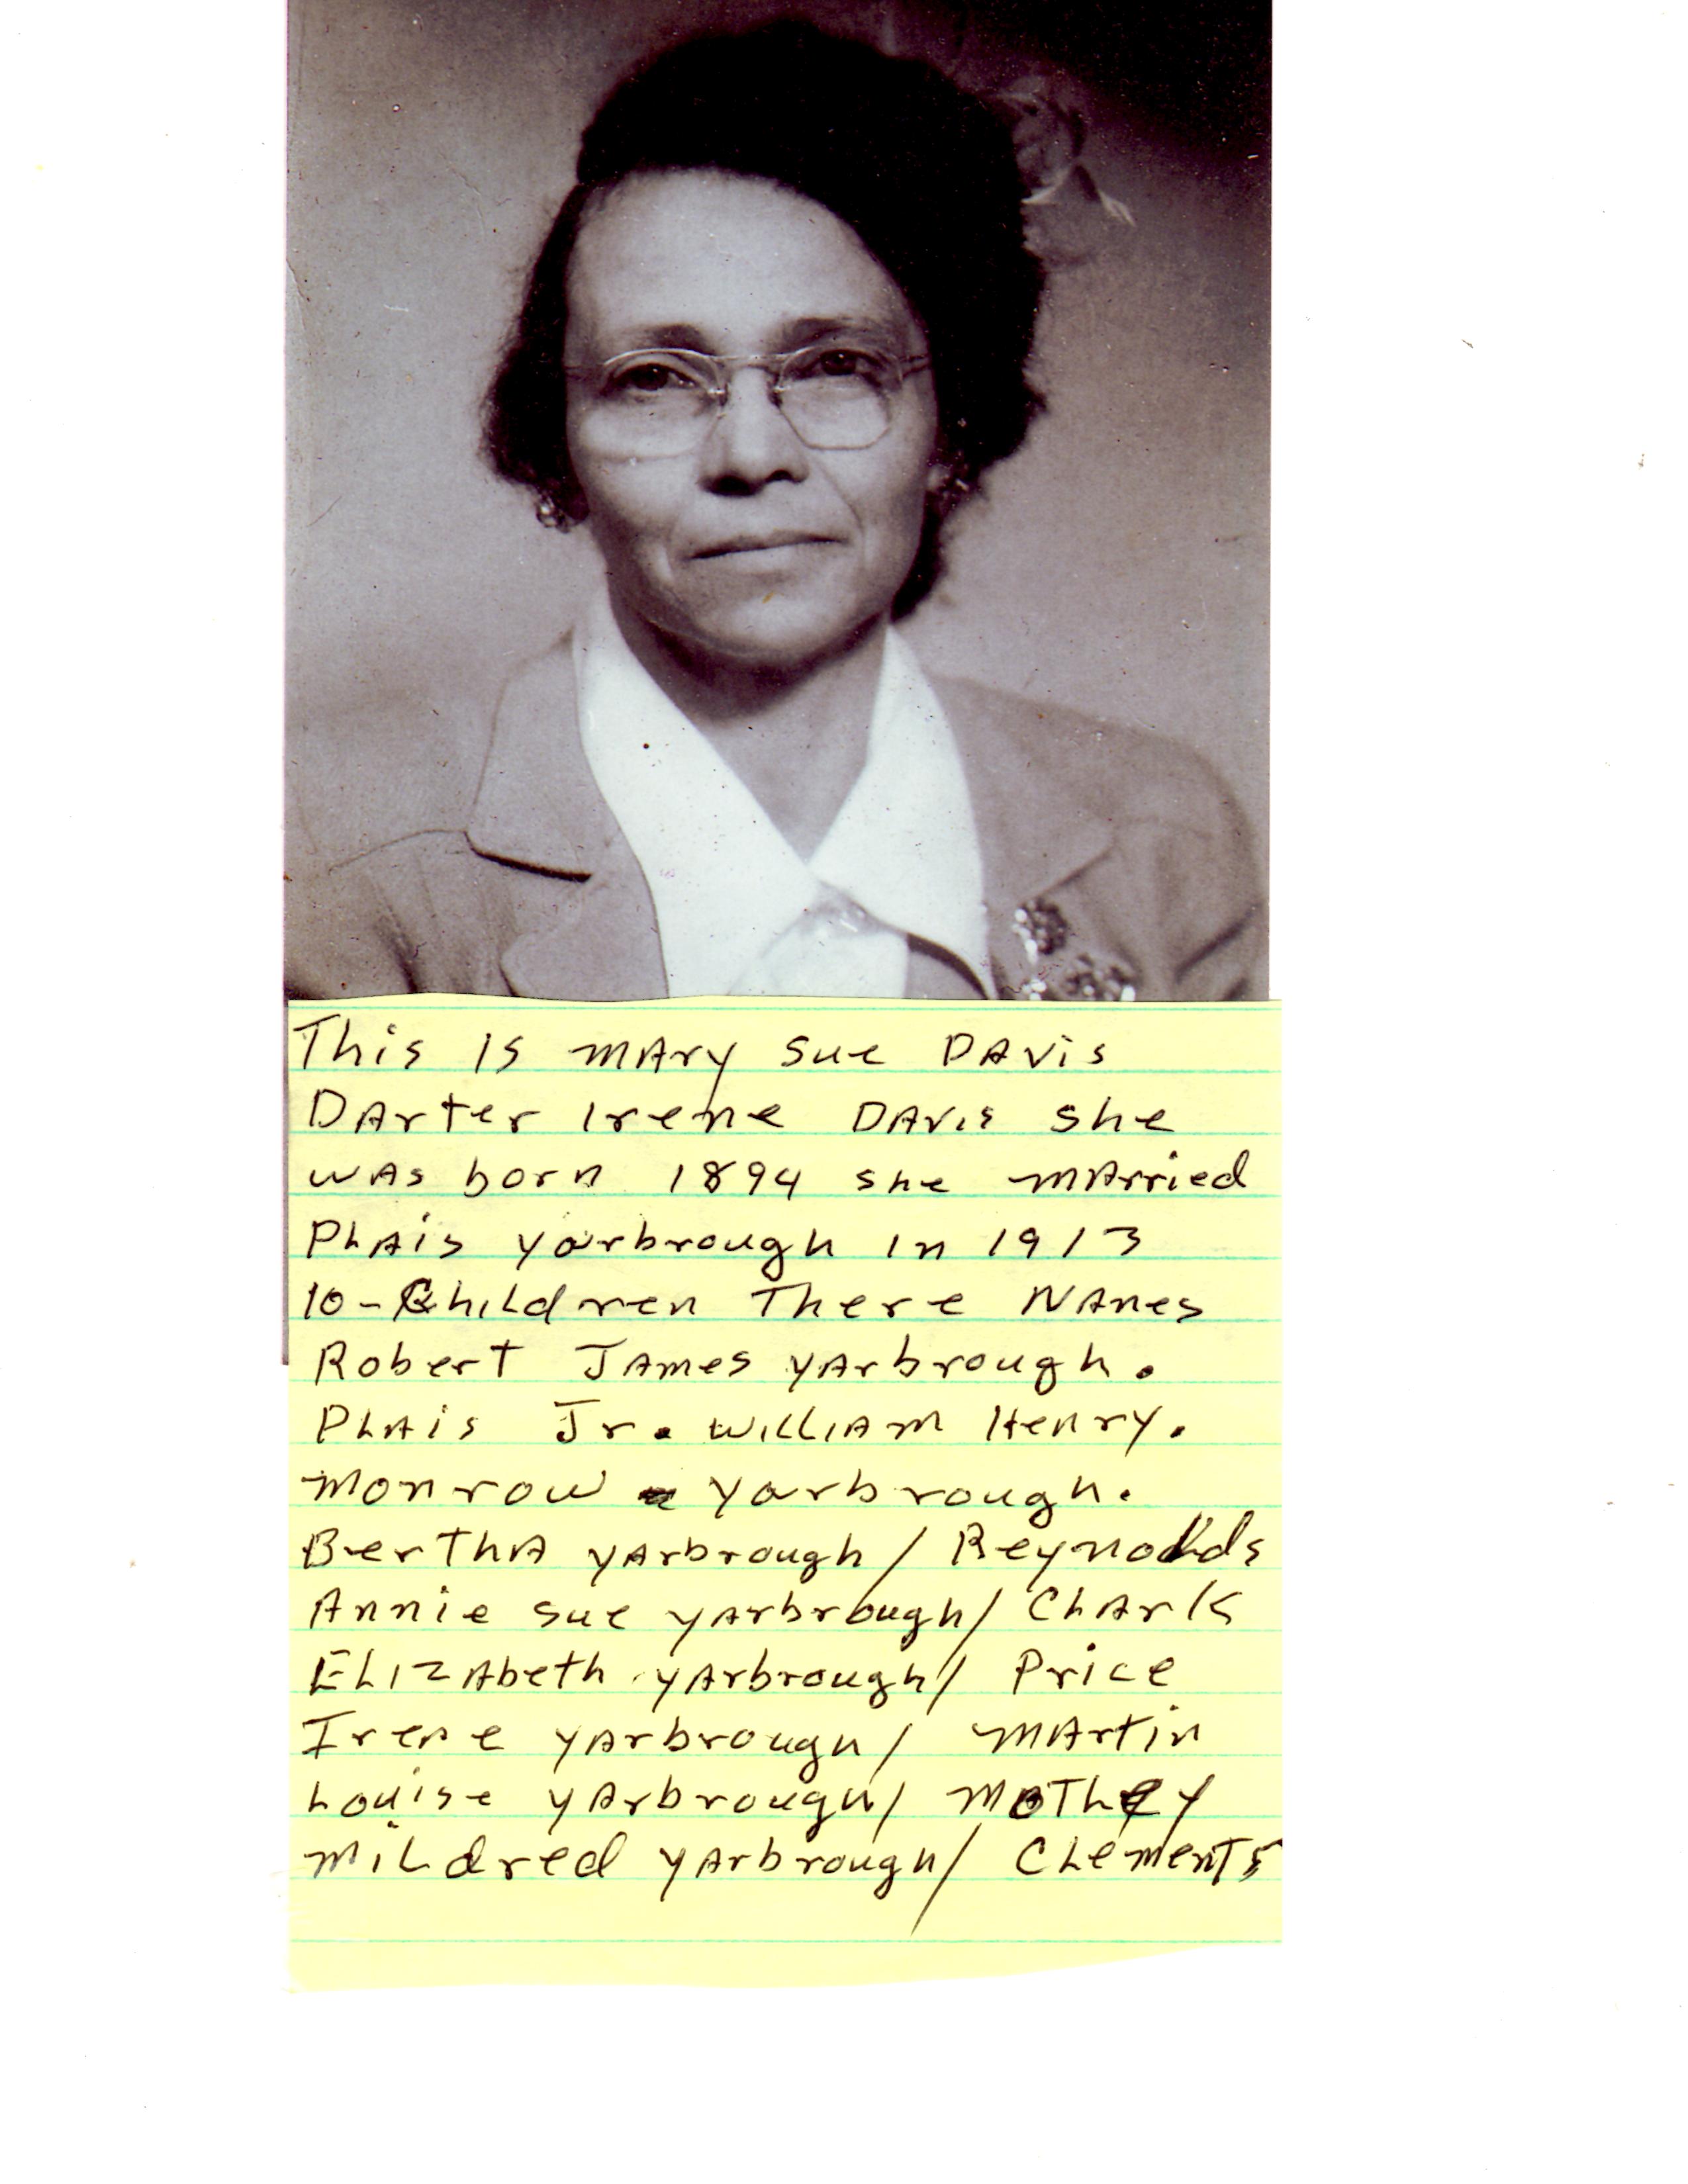 This is mary sue Davis
Darter Irene Davis she
was born 1894 she married
Plais yarbrough in 1913
10-Children There Nanes
Robert James yarbrough.
Plais Jr. William Henry.
monrow yarbrough.
Bertha yarbrough / Reynolds
Annie sue yarbrough/ Clark
Elizabeth yarbrough/ Price
Irene yarbrough/ martin
Louise yarbrough/ Mothey
mildred yarbrough/ Clements